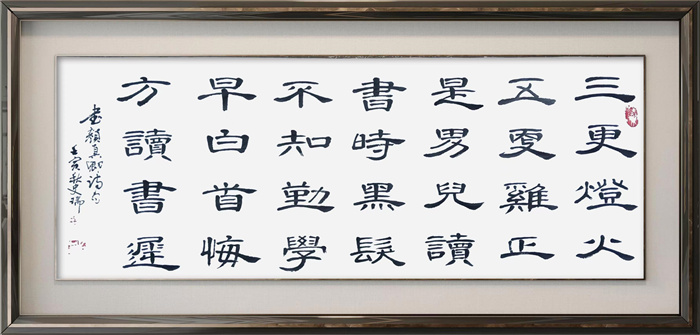 三更燈火
五更雞正
是男兒讀
書時黑髮
不知勤學
早白首悔
方讀書遲
書顏真卿詩句
壬寅秋史瑞